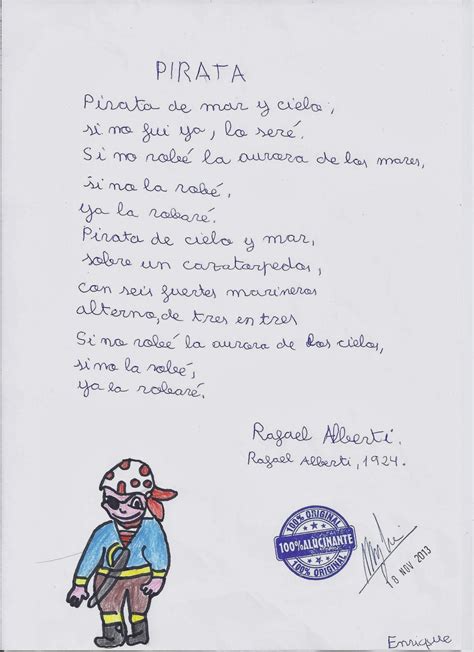 PIRATA
Pirata de mar y cielo,
si no fui ya, lo seré.
Si no robé la aurora de los mares,
si no la robé,
ya la robaré.
Pirata de cielo y mar,
sobre un cazatorpedos,
con seis fuertes marineros
alterno, de tres en tres
Si no robé la aurora de los cielos,
si no la robé,
ya la robaré.
Rafael Alberti.
Rafael Alberti, 1924.
100% ORIGINAL
100% ALUCINANTE
100% ORIGINAL
18 NOV 2013
Enrique